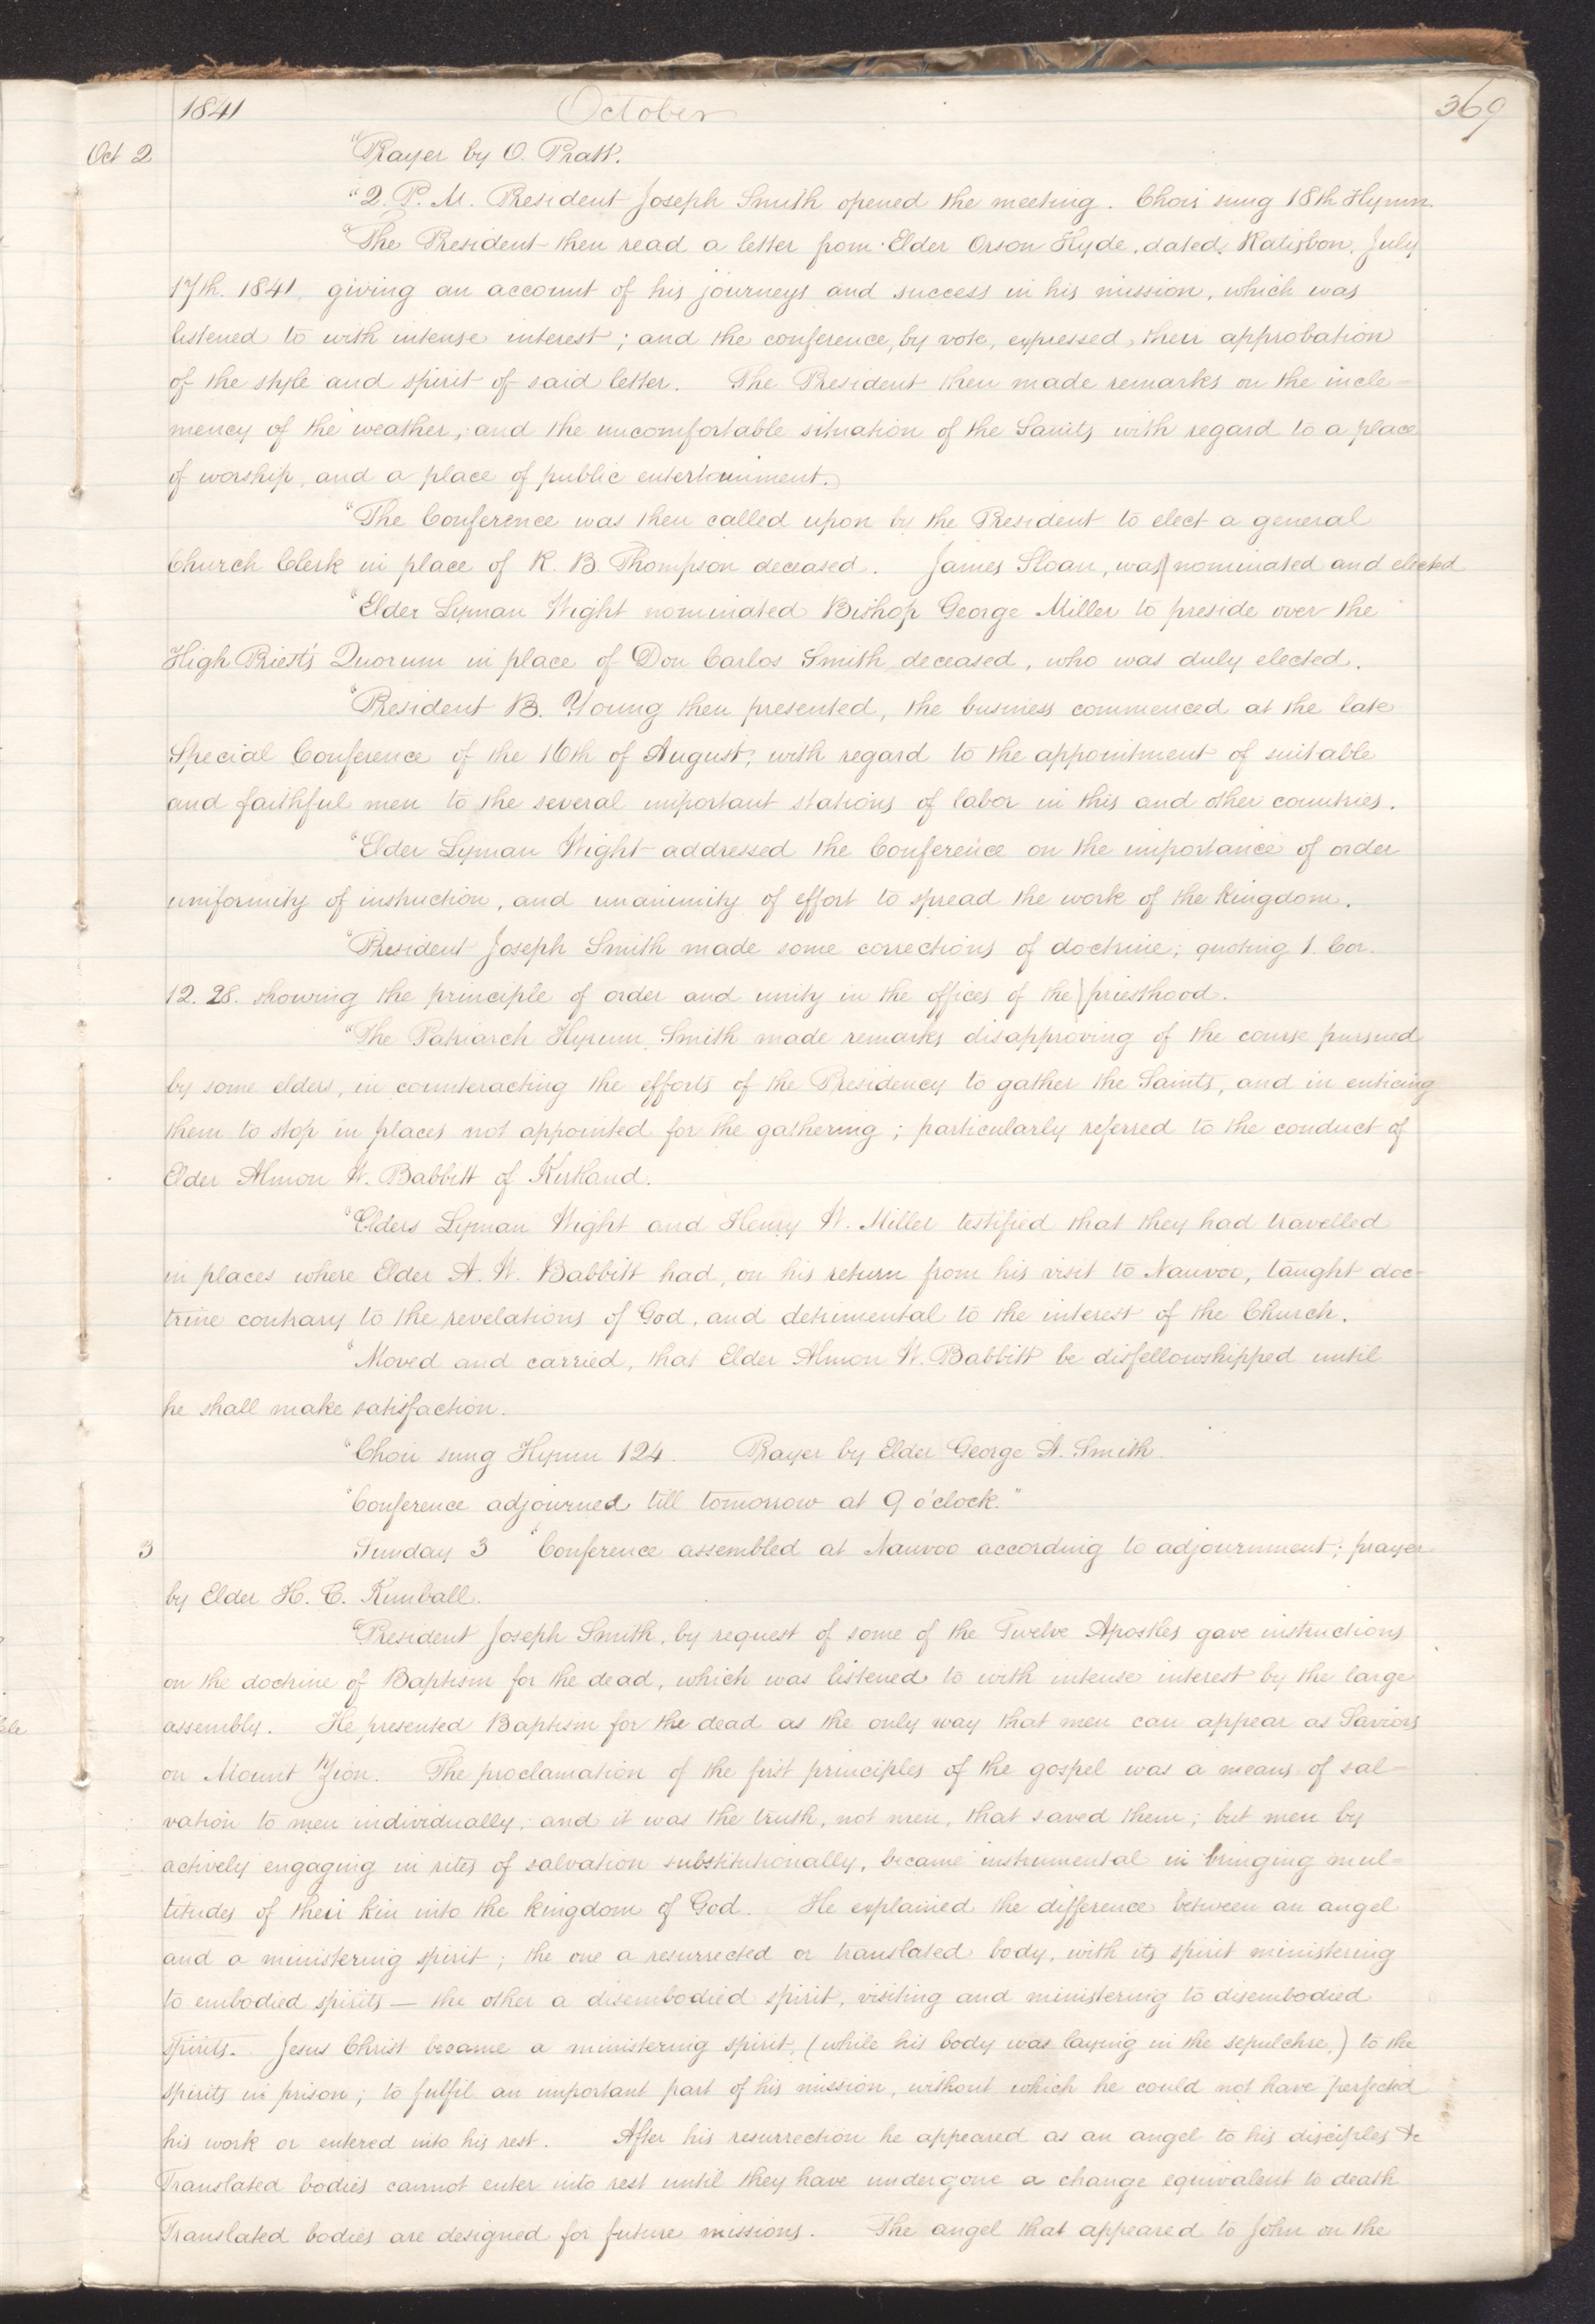 1841 October 369
Oct 2 "Prayer by O. Pratt.
"2. P. M. President Joseph Smith opened the meeting. Choir sung 18th Hymn.
"The President then read a letter from Elder Orson Hyde, dated, Ratisbon, July
17th. 1841, giving an account of his journeys and success in his mission, which was
listened to with intense interest; and the conference, by vote, expressed, their approbation
of the style and spirit of said letter. The President then made remarks on the incle=
mency of the weather, and the uncomfortable situation of the Saints with regard to a place
of worship, and a place of public entertainment.
"The Conference was then called upon by the President to elect a general
Church Clerk in place of R. B. Thompson deceased. James Sloan, was nominated and elected
"Elder Lyman Wight nominated Bishop George Miller to preside over the
High Priest's Quorum in place of Don Carlos Smith deceased, who was duly elected.
"President B. Young then presented, the business commenced at the late
Special Conference of the 16th of August; with regard to the appointment of suitable
and faithful men to the several important stations of labor in this and other countries.
"Elder Lyman Wight addressed the Conference on the importance of order
uniformity of instruction, and unanimity of effort to spread the work of the kingdom.
"President Joseph Smith made some corrections of doctrine; quoting 1. Cor.
12. 28. showing the principle of order and unity in the offices of the priesthood.
"The Patriarch Hyrum Smith made remarks disapproving of the course pursued
by some elders, in counteracting the efforts of the Presidency to gather the Saints, and in enticing
them to stop in places not appointed for the gathering; particularly referred to the conduct of
Elder Almon W. Babbitt of Kirtland.
"Elders Lyman Wight and Henry W. Miller testified that they had travelled
in places where Elder A. W. Babbitt had, on his return from his visit to Nauvoo, taught doc=
trine contrary to the revelations of God, and detrimental to the interest of the Church.
"Moved and carried, that Elder Almon W. Babbitt be disfellowshipped until
he shall make satisfaction.
"Choir sung Hymn 124. Prayer by Elder George A. Smith.
"Conference adjourned till tomorrow at 9 o'clock."
3 Sunday 3 "Conference assembled at Nauvoo according to adjournment; prayer
by Elder H. C. Kimball.
"President Joseph Smith, by request of some of the Twelve Apostles gave instructions
on the doctrine of Baptism for the dead, which was listened to with intense interest by the large
assembly. He presented Baptism for the dead as the only way that men can appear as Saviors
on Mount Zion. The proclamation of the first principles of the gospel was a means of sal=
vation to men individually; and it was the truth, not men, that saved them; but men by
actively engaging in rites of salvation substitutionally, became instrumental in bringing mul=
titudes of their kin into the kingdom of God. He explained the difference between an angel
and a ministering spirit; the one a resurrected or translated body, with its spirit ministering
to embodied spirits — the other a disembodied spirit, visiting and ministering to disembodied
spirits. Jesus Christ became a ministering spirit, (while his body was laying in the sepulchre,) to the
spirits in prison; to fulfil an important part of his mission, without which he could not have perfected
his work or entered into his rest. After his resurrection he appeared as an angel to his disciples &c
Translated bodies cannot enter into rest until they have undergone a change equivalent to death
Translated bodies are designed for future missions. The angel that appeared to John on the